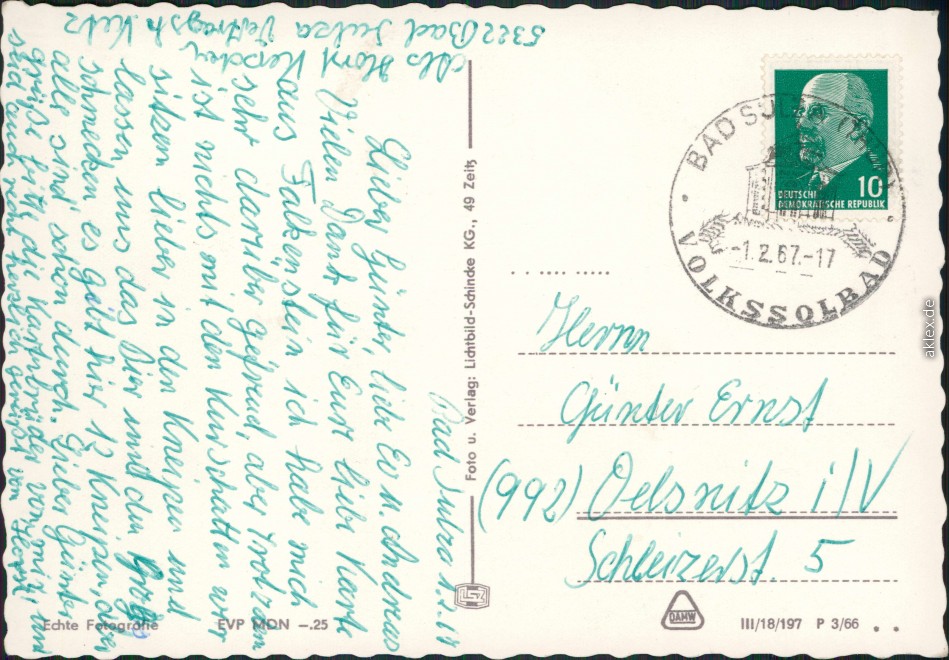 5322 Bad Sulza
Bad Sulza 1.2.67
Lieber Günter, liebe Ev u. Andreas
Vielen Dank für Eure liebe Karte
aus Falkenstein ich habe mich
sehr darüber gefreut, aber trotzdem
ist nichts mit den Kurschatten wir
sitzen lieber in den Kneipen und
lassen uns das Bier und den Grog
schmecken es gibt hier 12 Kneipen, die
alle sind schon durch. Lieber Günter
grüße bitte die Kartbrüder von mir, und
sei auch Du herzlich gegrüßt von Horst
Foto u. Verlag: Lichtbild-Schindke KG., 49 Zeitz
BAD SULZA
-1.2.67.-17
VOLKSSOLBAD
10
DEUTSCHE
DEMOKRATISCHE REPUBLIK
Herrn
Günter Ernst
(992) Oelsnitz i/V
Schleizerst. 5
Echte Fotografie EVP MDN -.25
DAMW
III/18/197 P 3/66
aklex.de